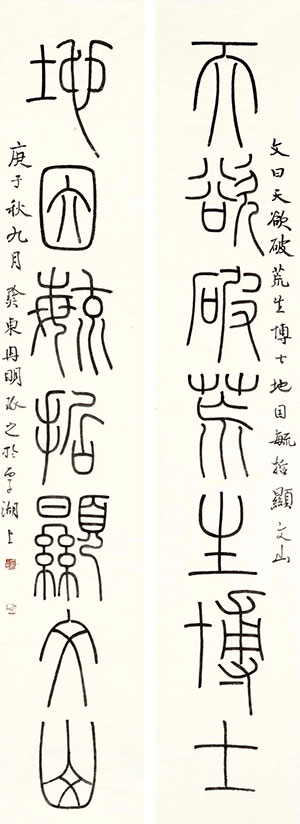 文曰天欲破荒生博士地因毓哲顯文山
天欲破荒生博士
地因毓哲顯文山
庚子秋九月東冉明之於湖上